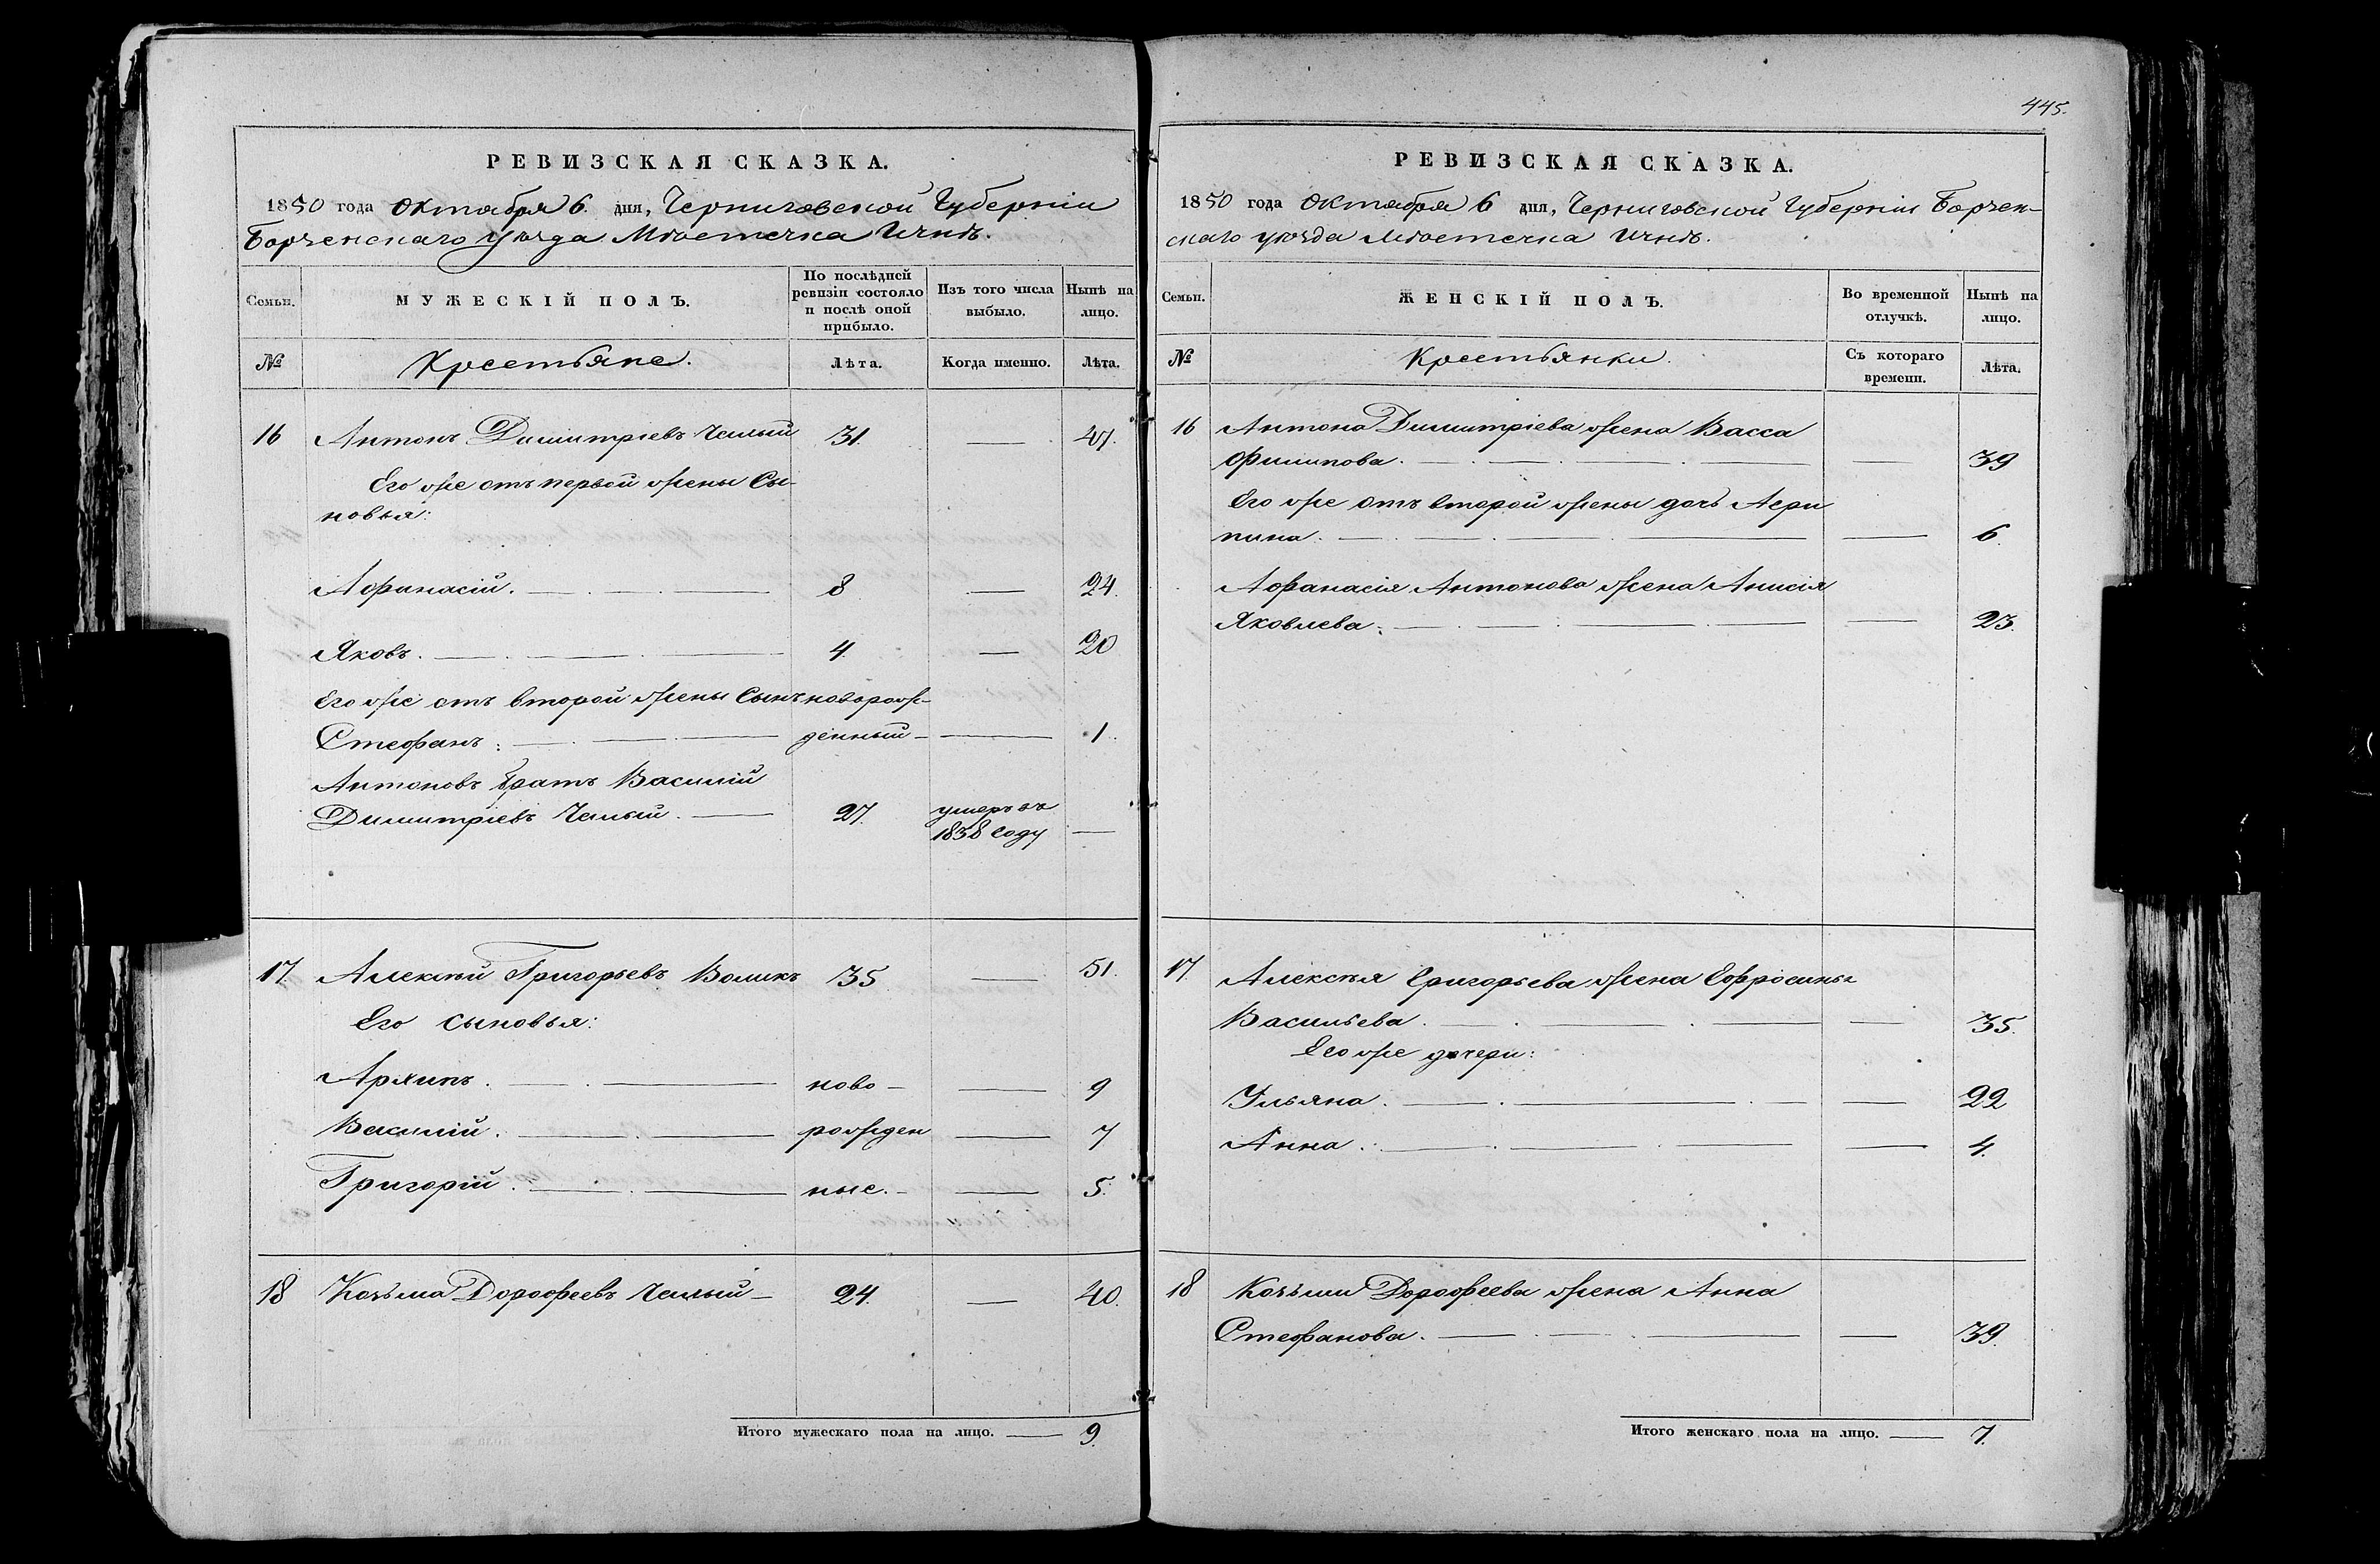 РЕВИЗСКАЯ СКАЗКА.
1850 года Октября 6. дня, Черниговской Губерніи
Борзенскаго Уѣзда Мѣстечка Ичнѣ.
Семьи.
МУЖЕСКІЙ ПОЛЪ.
По послѣдней ревизіи состояло и послѣ оной прибыло.
Изъ того числа выбыло.
Нынѣ на лицо.
№
Крестьяне.
Лѣта.
Когда именно.
Лѣта.
16 Антонъ Димитріевъ 31. — 47.
Его же отъ первой жены Сы-
новья:
Афанасій. — 8 — 24.
Яковъ. — 4. — 20
Его же отъ второй жены Сынъ новорож-
Стефанъ: — денный — 1.
Антоновъ братъ Василій
Димитріевъ — 27. умеръ въ
1838 году —
17. Алексѣй Григорьевъ Воликъ 35 — 51.
Его Сыновья:
Архипъ. — ново — 9
Василій. — рожден — 7
Григорій. — ные. — 5.
18 Козьма Дорофеевъ 24. — 40.
Итого мужескаго пола на лицо. — 9.
445.
РЕВИЗСКАЯ СКАЗКА.
1850 года Октября 6 дня, Черниговской Губерніи Борзен-
скаго уѣзда Мѣстечка Ичнѣ.
Семьи.
ЖЕНСКІЙ ПОЛЪ.
Во временной отлучкѣ.
Нынѣ на лицо.
№
Крестьянки.
Съ котораго времени.
Лѣта.
16 Антона Димитріева жена Васса
Филипова. — 39
Его же отъ второй жены дочь Агри
пина. — 6.
Афанасія Антонова жена Анисія
Яковлева. — 23.
17. Алексѣя Григорьева жена Ефросинья
Васильева. — 35.
Его же дочери:
Ульяна. — 22
Анна. — 4.
18 Козьмы Дорофеева жена Анна
Стефанова. — 39.
Итого женскаго пола на лицо. — 7.